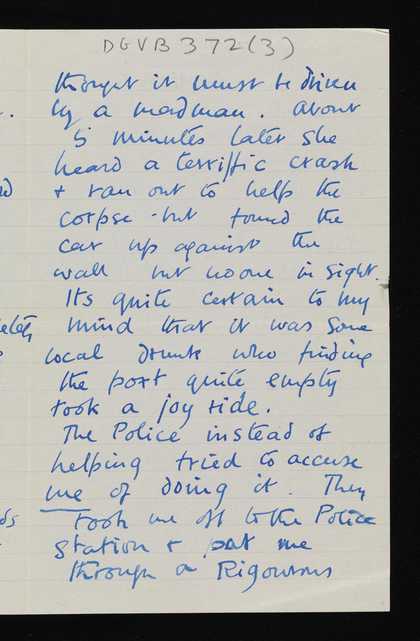 DGVB 372(3)
thought it must be driven
by a madman. About
5 minutes later she
heard a terriffic crash
+ ran out to help the
corpse - but found the
car up against the
wall but no one in sight.
Its quite certain to my
mind that it was some
local drunk who finding
the port quite empty
took a joy ride.
The Police instead of
helping tried to accuse
me of doing it. They
took me off to the Police
Station + put me
through a Rigourous